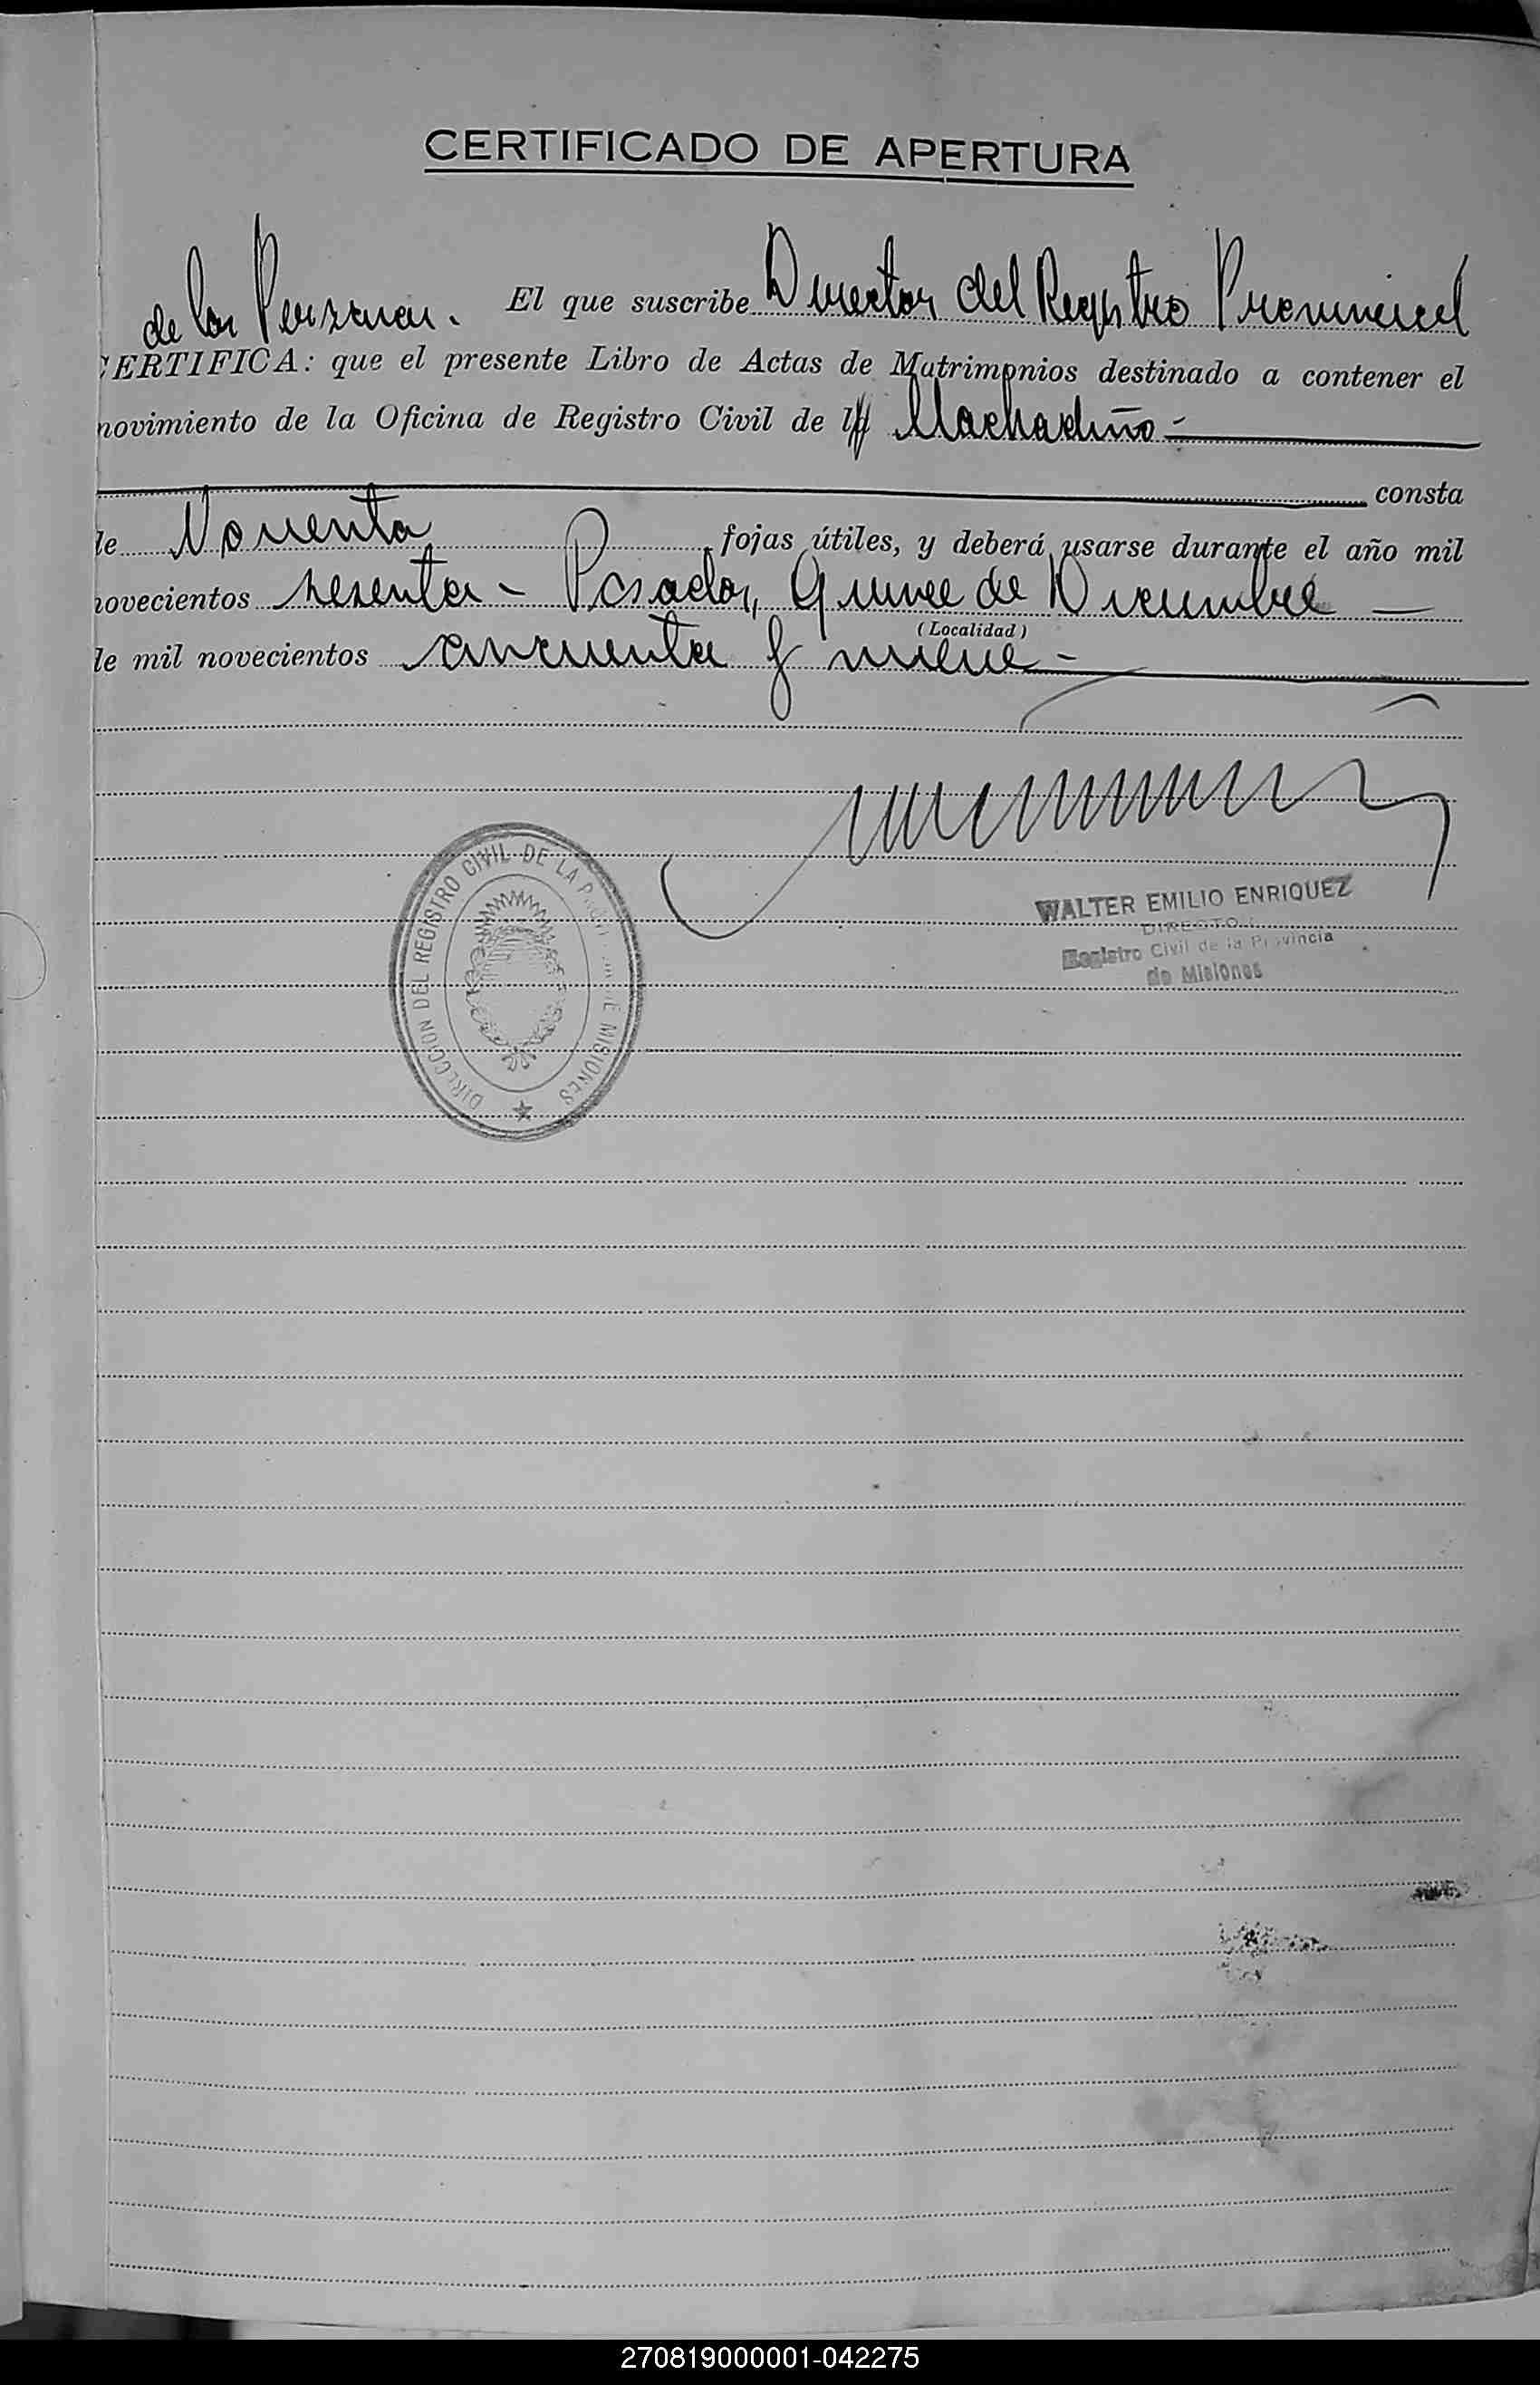 CERTIFICADO DE APERTURA
de las Personas. El que suscribe Director del Registro Provincial
CERTIFICA: que el presente Libro de Actas de Matrimonios destinado a contener el
movimiento de la Oficina de Registro Civil de Machadiño.-
consta
de Noventa fojas útiles, y deberá usarse durante el año mil
novecientos sesenta - Posadas, Quince de Diciembre
(Localidad)
de mil novecientos cincuenta y nueve -
WALTER EMILIO ENRIQUEZ
DIRECTOR
Registro Civil de la Provincia
de Misiones
DIRECCION DEL REGISTRO CIVIL DE LA PROVINCIA DE MISIONES
270819000001-042275